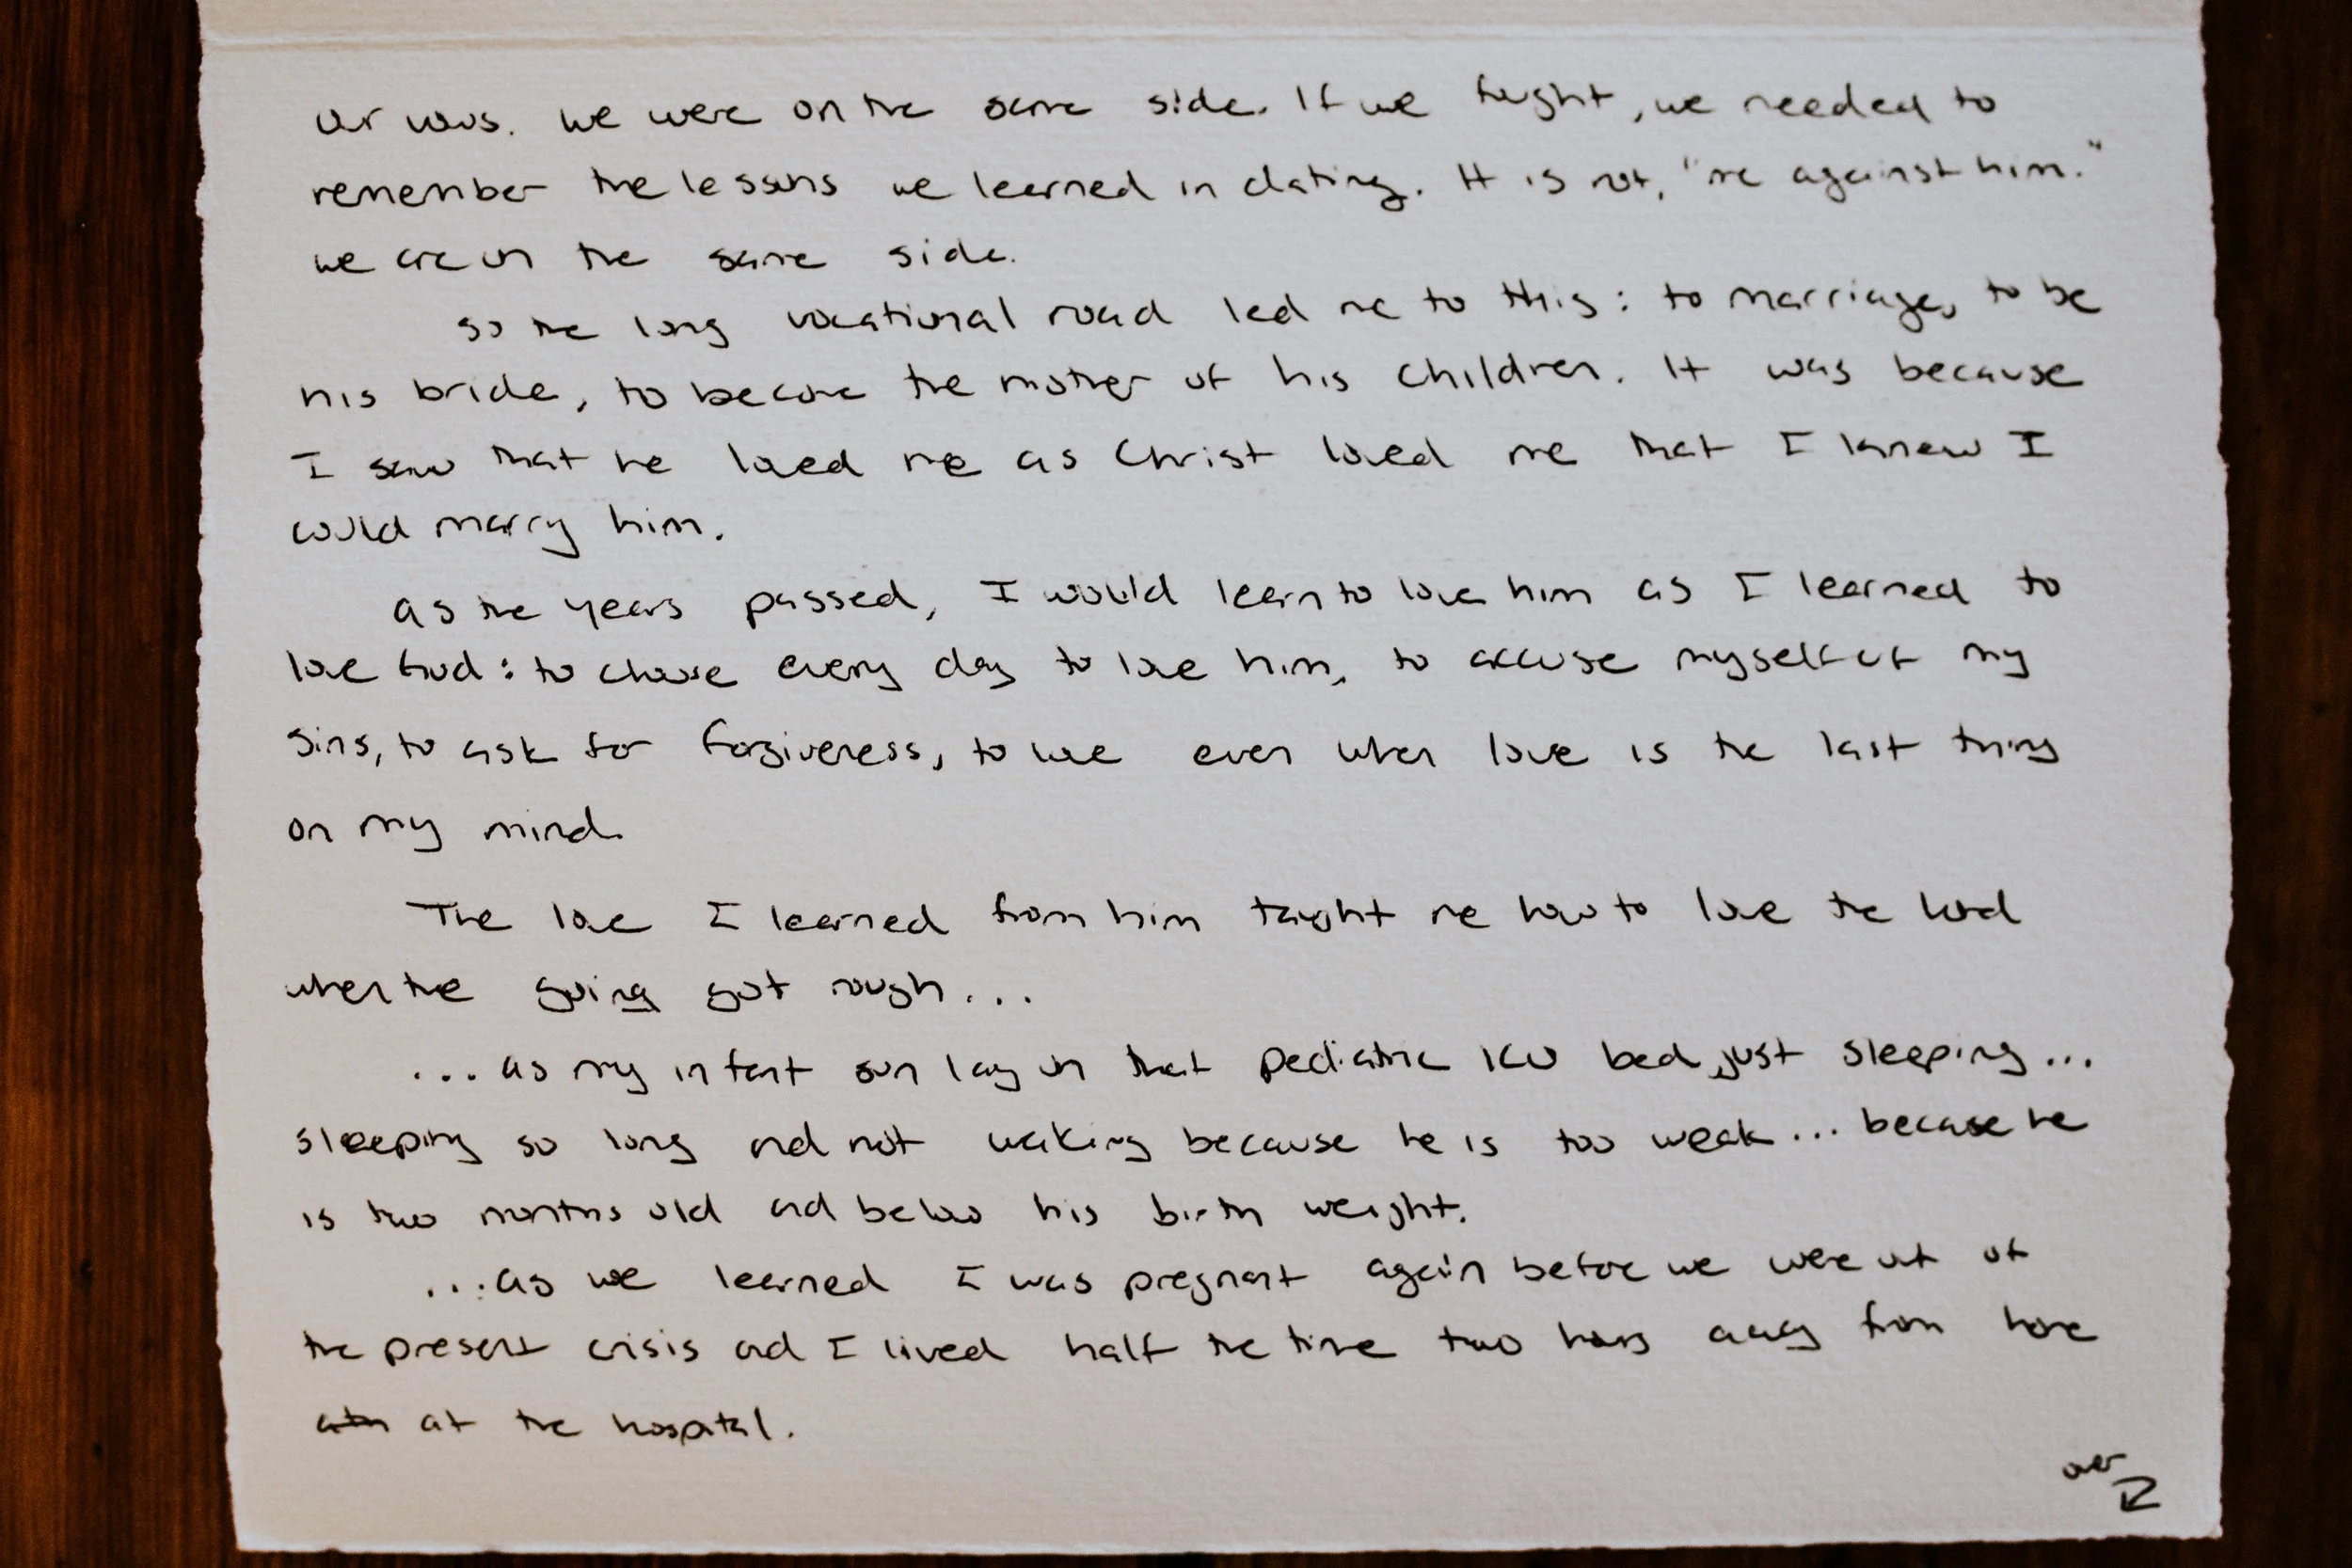 our vows. We were on the same side. If we fought, we needed to
remember the lessons we learned in dating. It is not, "me against him."
We are on the same side.
So the long vocational road led me to this: to marriage, to be
his bride, to become the mother of his children. It was because
I saw that he loved me as Christ loved me that I knew I
could marry him.
As the years passed, I would learn to love him as I learned to
love God: to choose every day to love him, to accuse myself of my
sins, to ask for forgiveness, to love even when love is the last thing
on my mind.
The love I learned from him taught me how to love the Lord
when the going got rough...
...as my infant son lay on that pediatric ICU bed, just sleeping...
sleeping so long and not waking because he is too weak... because he
is two months old and below his birth weight.
...as we learned I was pregnant again before we were out of
the present crisis and I lived half the time two hours away from home
at the hospital.
over